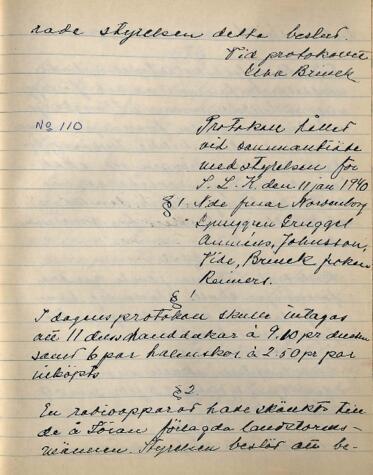 rade styrelsen detta beslut.
Vid protokollet
Elsa Brinck
No 110
Protokoll hållet
vid sammanträde
med styrelsen för
S. L. K. den 11 jan 1940
§ 1 Nde fruar Norrenborg
Ljunggren
Johnsson,
Vide, Brinck fröken
Reimers.
§ 1
I dagens protokoll skulle intagas
att 11 duss handdukar à 9.10 pr dussin
samt 6 par halmskor à 2.50 pr par
inköpts
§ 2
En radioapparat hade skänkts till
de å Torön förlagda landstorms-
männen. Styrelsen beslöt att be-